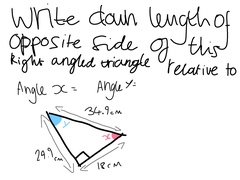 Write down length of
opposite side of this
Right angled triangle relative to
Angle x= Angle y=
34.9cm
y
x
29.9cm
18cm